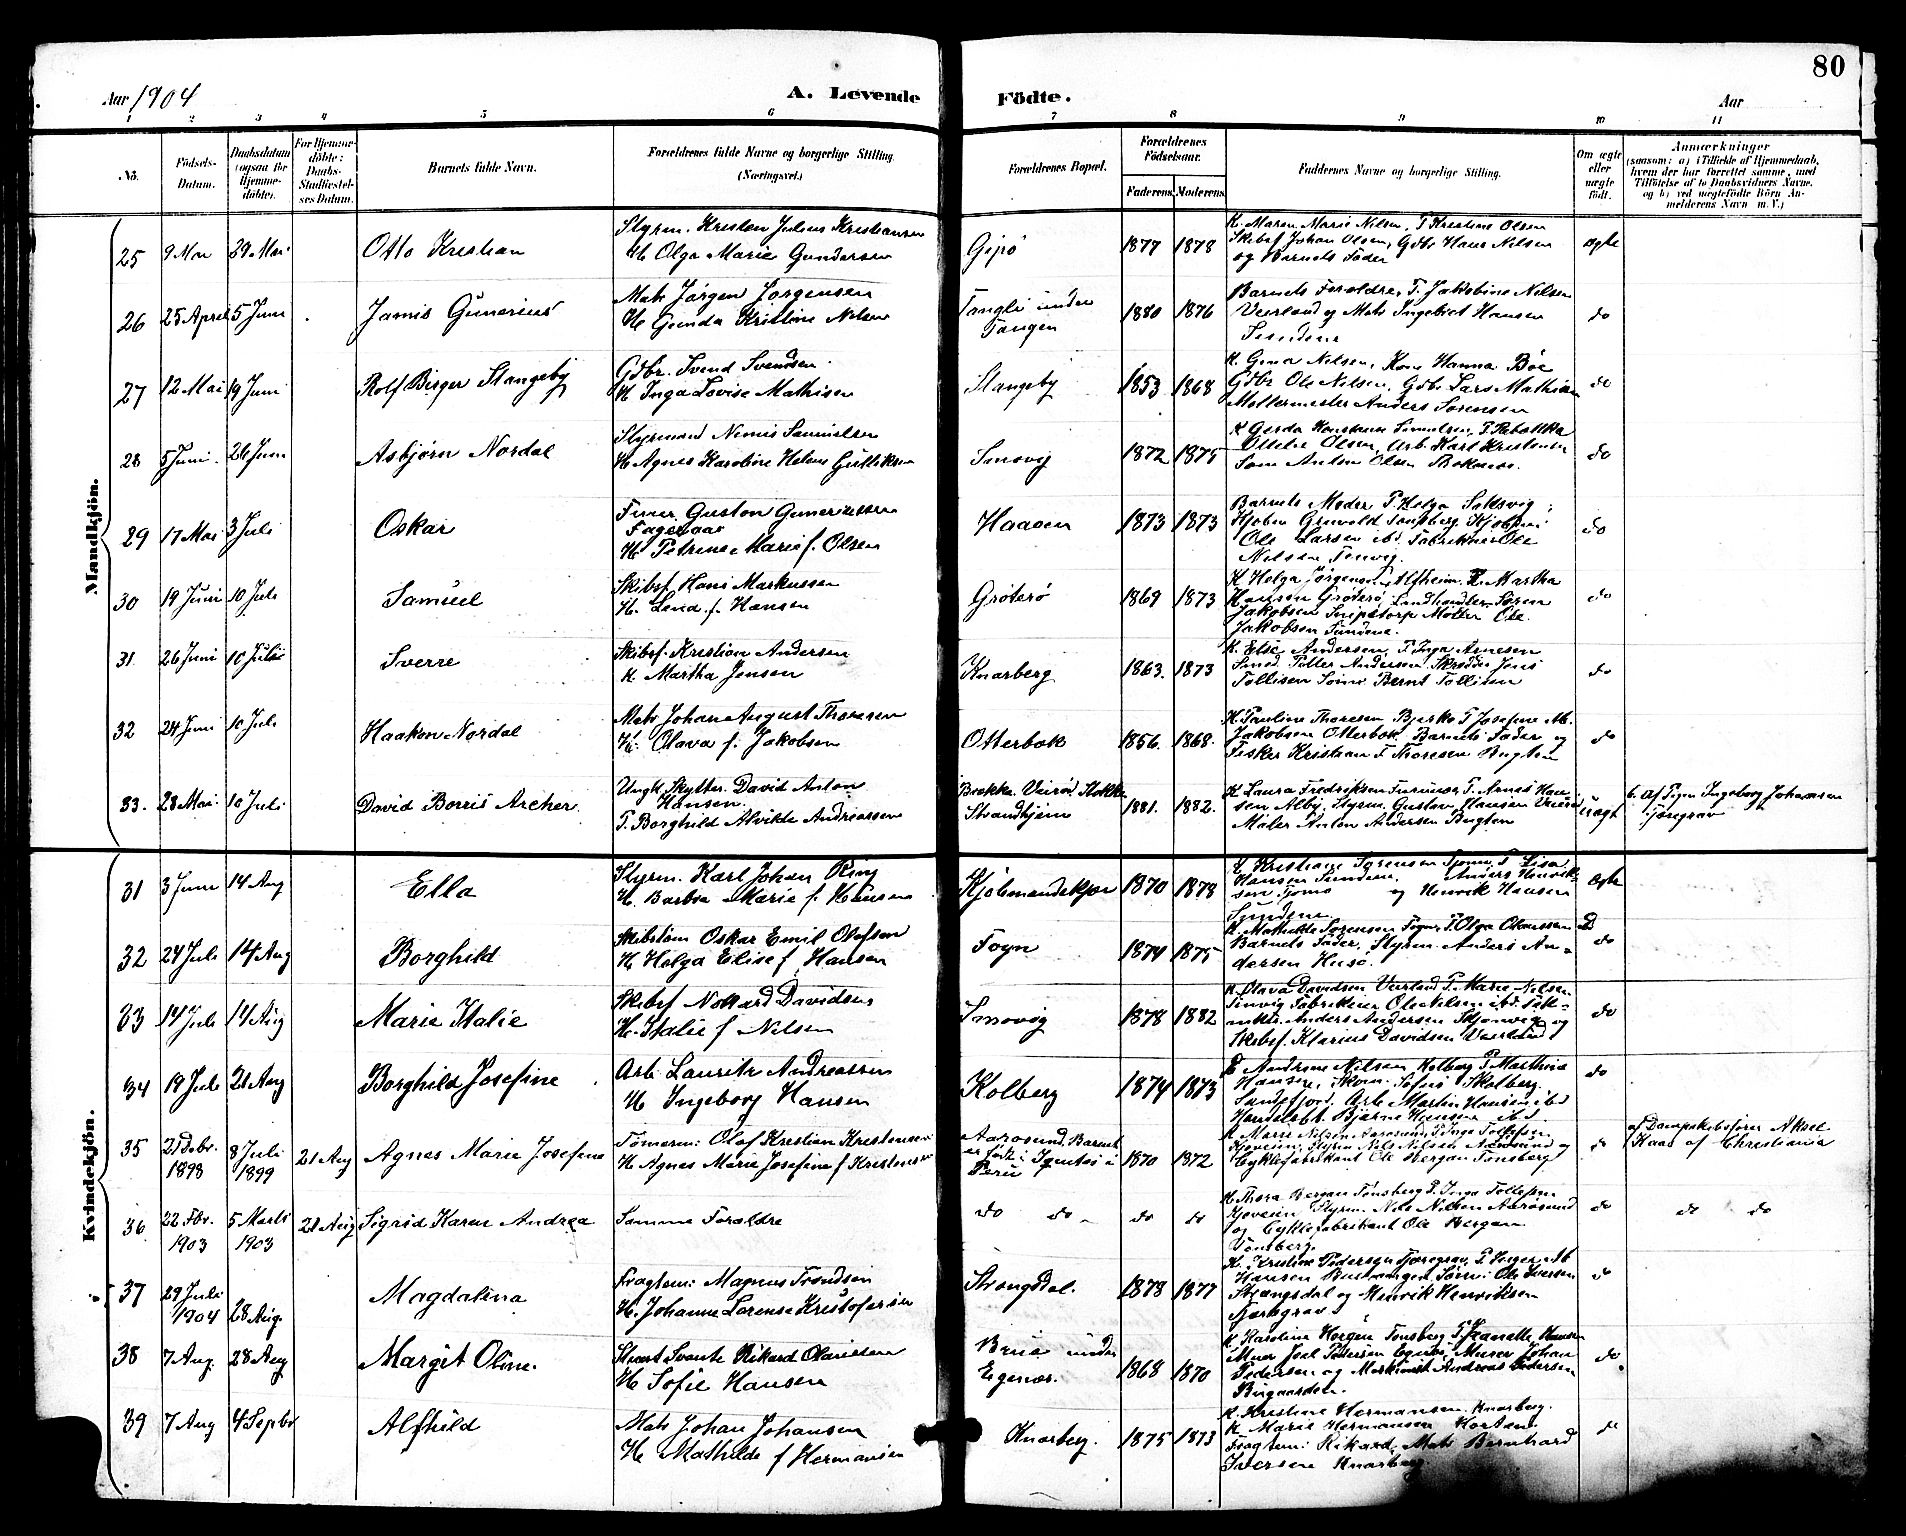 80
Aar 1904
A. Levende Födte.
Aar
1 2 3 4 5 6 7 8 9 10 11
No.
Födsels-Datum.
Daabsdatum (ogsaa for Hjemmedöbte).
For Hjemmedöbte: Daabs-Stadfæstelses Datum.
Barnets fulde Navn.
Forældrenes fulde Navne og borgerlige Stilling. (Næringsvei.)
Forældrenes Bopæl.
Forældrenes Födselsaar.
Faderens. Moderens.
Faddernes Navne og borgerlige Stilling.
Om ægte eller uægte födt.
Anmærkninger
(saasom: a) i Tilfælde af Hjemmedaab, hvem der har forrettet samme, med Tilföielse af to Daabsvidners Navne, og b) ved uægtefödte Börn Anmelderens Navn m. V.)
Mandkjön.
25 9 Mai 29 Mai Otto Kristian
Styrm. Kristen Julius Kristiansen
H. Olga Marie Gundersen
Gipö 1877 1878
K. Maren Marie Nilsen, P. Kristine Olsen
Skibsf Johan Olsen, Gdbr Hans Nilsen
og Barnets Fader
ægte
26 25 April 5 Juni Jamis Gunerius
Matr Jörgen Jorgensen
H. Gunda Kristine Nilsen
Tangli under
Tangen
1880 1876
Barnets Foraldre, P. Jakobine Nilsen
Veierland og Matr Ingebret Hansen
Sundene
do
27 12 Mai 19 Juni Rolf Birger Stangeby
Gdbr. Svend Svendsen
H Inga Lovise Mathisen
Stangeby 1853 1868
K. Gina Nilsen, Kone Hanna Böe
Gdbr Ole Nilsen, Gdbr Lars Mathisen
Møllermester Anders Sørensen
do
28 5 Juni 26 Juni Asbjörn Nordal
Styrmand Nimis Samuelsen
H. Agnes Karoline Helene Gulliksen
Smovig 1872 1875
K Gerda Konstanse Simonsen, P. Rebekka
Ottilie Olsen, Arb. Karl Kristensen
Søm Anton Olsen
do
29 17 Mai 3 Juli Oskar
Gustav Guneriussen
Fagervaag
H. Petrine Marie f. Olsen
Haasen 1873 1873
Barnets Moder P. Helga Solsvig
Kjøbm Grinvold Tonsberg Kjobm
Ole Larsen ibd. Fabrikeier Ole
Nilsen Tenvig.
do
30 19 Juni 10 Juli Samuel
Skibsf Hans Markussen
H. Lina f. Hansen
Gröterö 1869 1873
K. Helga Jørgensen Alfheim P. Martha
Hansen Gröterö Landhandler Sören
Jakobsen Snipetorp Møller Ole
Jakobsen Sundene.
do
31 26 Juni 10 Juli Sverre
Skibsf. Kristian Andersen
H. Martha Jensen
Knarberg 1863. 1873
K. Elise Andersen P. Inga Arnesen
Smed Petter Andersen Skrædder Jens
Tollisen Sømd Bernt Tollisen
do
32 24 Juni 10 Juli Haakon Nordal
Matr Johan August Thoresen
H. Olava f. Jakobsen
Otterbok 1856. 1868.
K. Pauline Thoresen, Bjerkø P Josefine M.
Jakobsen Otterbok, Barnets Fader og
Fisker Kristian F. Thoresen Bugten
do
33. 28 Mai. 10 Juli David Borris Archer
Ungk Skytter David Anton
Hansen.
P. Borghild Alvilde Andreassen
Brække Veirød Stokke
Strandhjem
1881. 1882.
K. Laura Fredriksen Furumoe P. Arnes Hansen
Alby, Styrm. Gustav Hansen
Maler Anton Andersen Bugten
uægt
b. Af Pigen Ingeborg Johansen
Tjøregrav
Kvindekjön.
31 3 Juni 14 Aug Ella
Styrm. Karl Johan Ring
H. Barbra Marie f. Hansen
Kjöbmandskjær 1870 1878
K. Kristiane Sørensen Tjømø P. Lisa
Hansen Sundene, Anders Henriksen
Tjømø og Henrik Hansen
Sundene
ægte
32 24 Juli 14 Aug Borghild
Skibstöm Oskar Emil Olofson
H Helga Elise f. Hansen
Fogn 1874 1875
K. Mathilde Sørensen Fogn, P. Olga Olaussen
Barnets Fader, Styrm. Anders Andersen
Husö.
do
33 14 Juli 14 Aug Marie Italie
Skibsf Nokard Davidsen
H. Italie f Nilsen
Smovig 1878 1882
K. Olava Davidsen Veierland P. Marie Nilsen
Tenvig Fabrikeier Ole Nilsen ibd.
Anders Andersen Skjonvig og
Skibsf. Klarius Davidsen Veierland
do
34 19 Juli 21 Aug Borghild Josefine
Arb. Lauritz Andreassen
H Ingeborg Hansen
Kolberg 1874 1873
K Andrine Nilsen Kolberg P Mathea
Hansen, Skom. Sofus Skolberg
Sandefjord. Arb Martin Hansen ibd
Handelsbt. Bjarne Hansen ibd.
do
35 21 Debr. 1898 8 Juli 1899 21 Aug Agnes Marie Josefine
Tömerm: Olaf Kristian Kristensen
H Agnes Marie Josefine f Kristensen
Aarøsund, Barnet
er født i Iquitos i
Peru
1870 1872
K. Marie Nilsen Aarøsund P Inga Tollefsen
Kjøvesin, Styrm Nils Nilsen Aarøsund og
Cyklefabrikant Ole Bergan Tonsberg
do
af Dampskibsfører Aksel
Haas af Christiania
36 22 Fbr. 1903 5 Marts 1903 21 Aug Sigrid Karen Andrea
Samme Foraldre
do do do do
K. Thora Bergan Tønsberg P. Inga Tollefsen
Kjøvesin Styrm. Nils Nilsen Aarøsund
og Cyklefabrikant Ole Bergan
Tønsberg.
do do do
37 29 Juli 1904 28 Aug. Magdalena
Fragtem: Magnus Frandsen
H. Johanne Lorense Kristofersen
Strengsdal. 1878 1877
K. Kristine Pedersen Tjøregrav, P. Inger M
Hansen Buerangen Sørm: Ole Iversen
Strængsdal og Henrik Henriksen
Tjøregrav
do
38 7 Aug. 28 Aug Margit Oline.
Stuert Svante Rikard Olausen
H Sofie Hansen
Brua under
Egenæs.
1868 1870
K. Karoline Horgen Tonsberg P. Jeanette Hansen
Murer Joel Pedersen Egnes, Murer Johan
Pedersen og Maskinist Andreas Pedersen
Burgaarden.
do
39 7 Aug 4 Septbr Alfhild
Matr Johan Johansen
H Mathilde f Hermansen
Knarberg. 1875 1873
K. Kristine Hermansen Knarberg.
K Marie Hermansen Horten.
Fragtem: Rikard, Matr Bernhard
Iversen Knarberg.
do